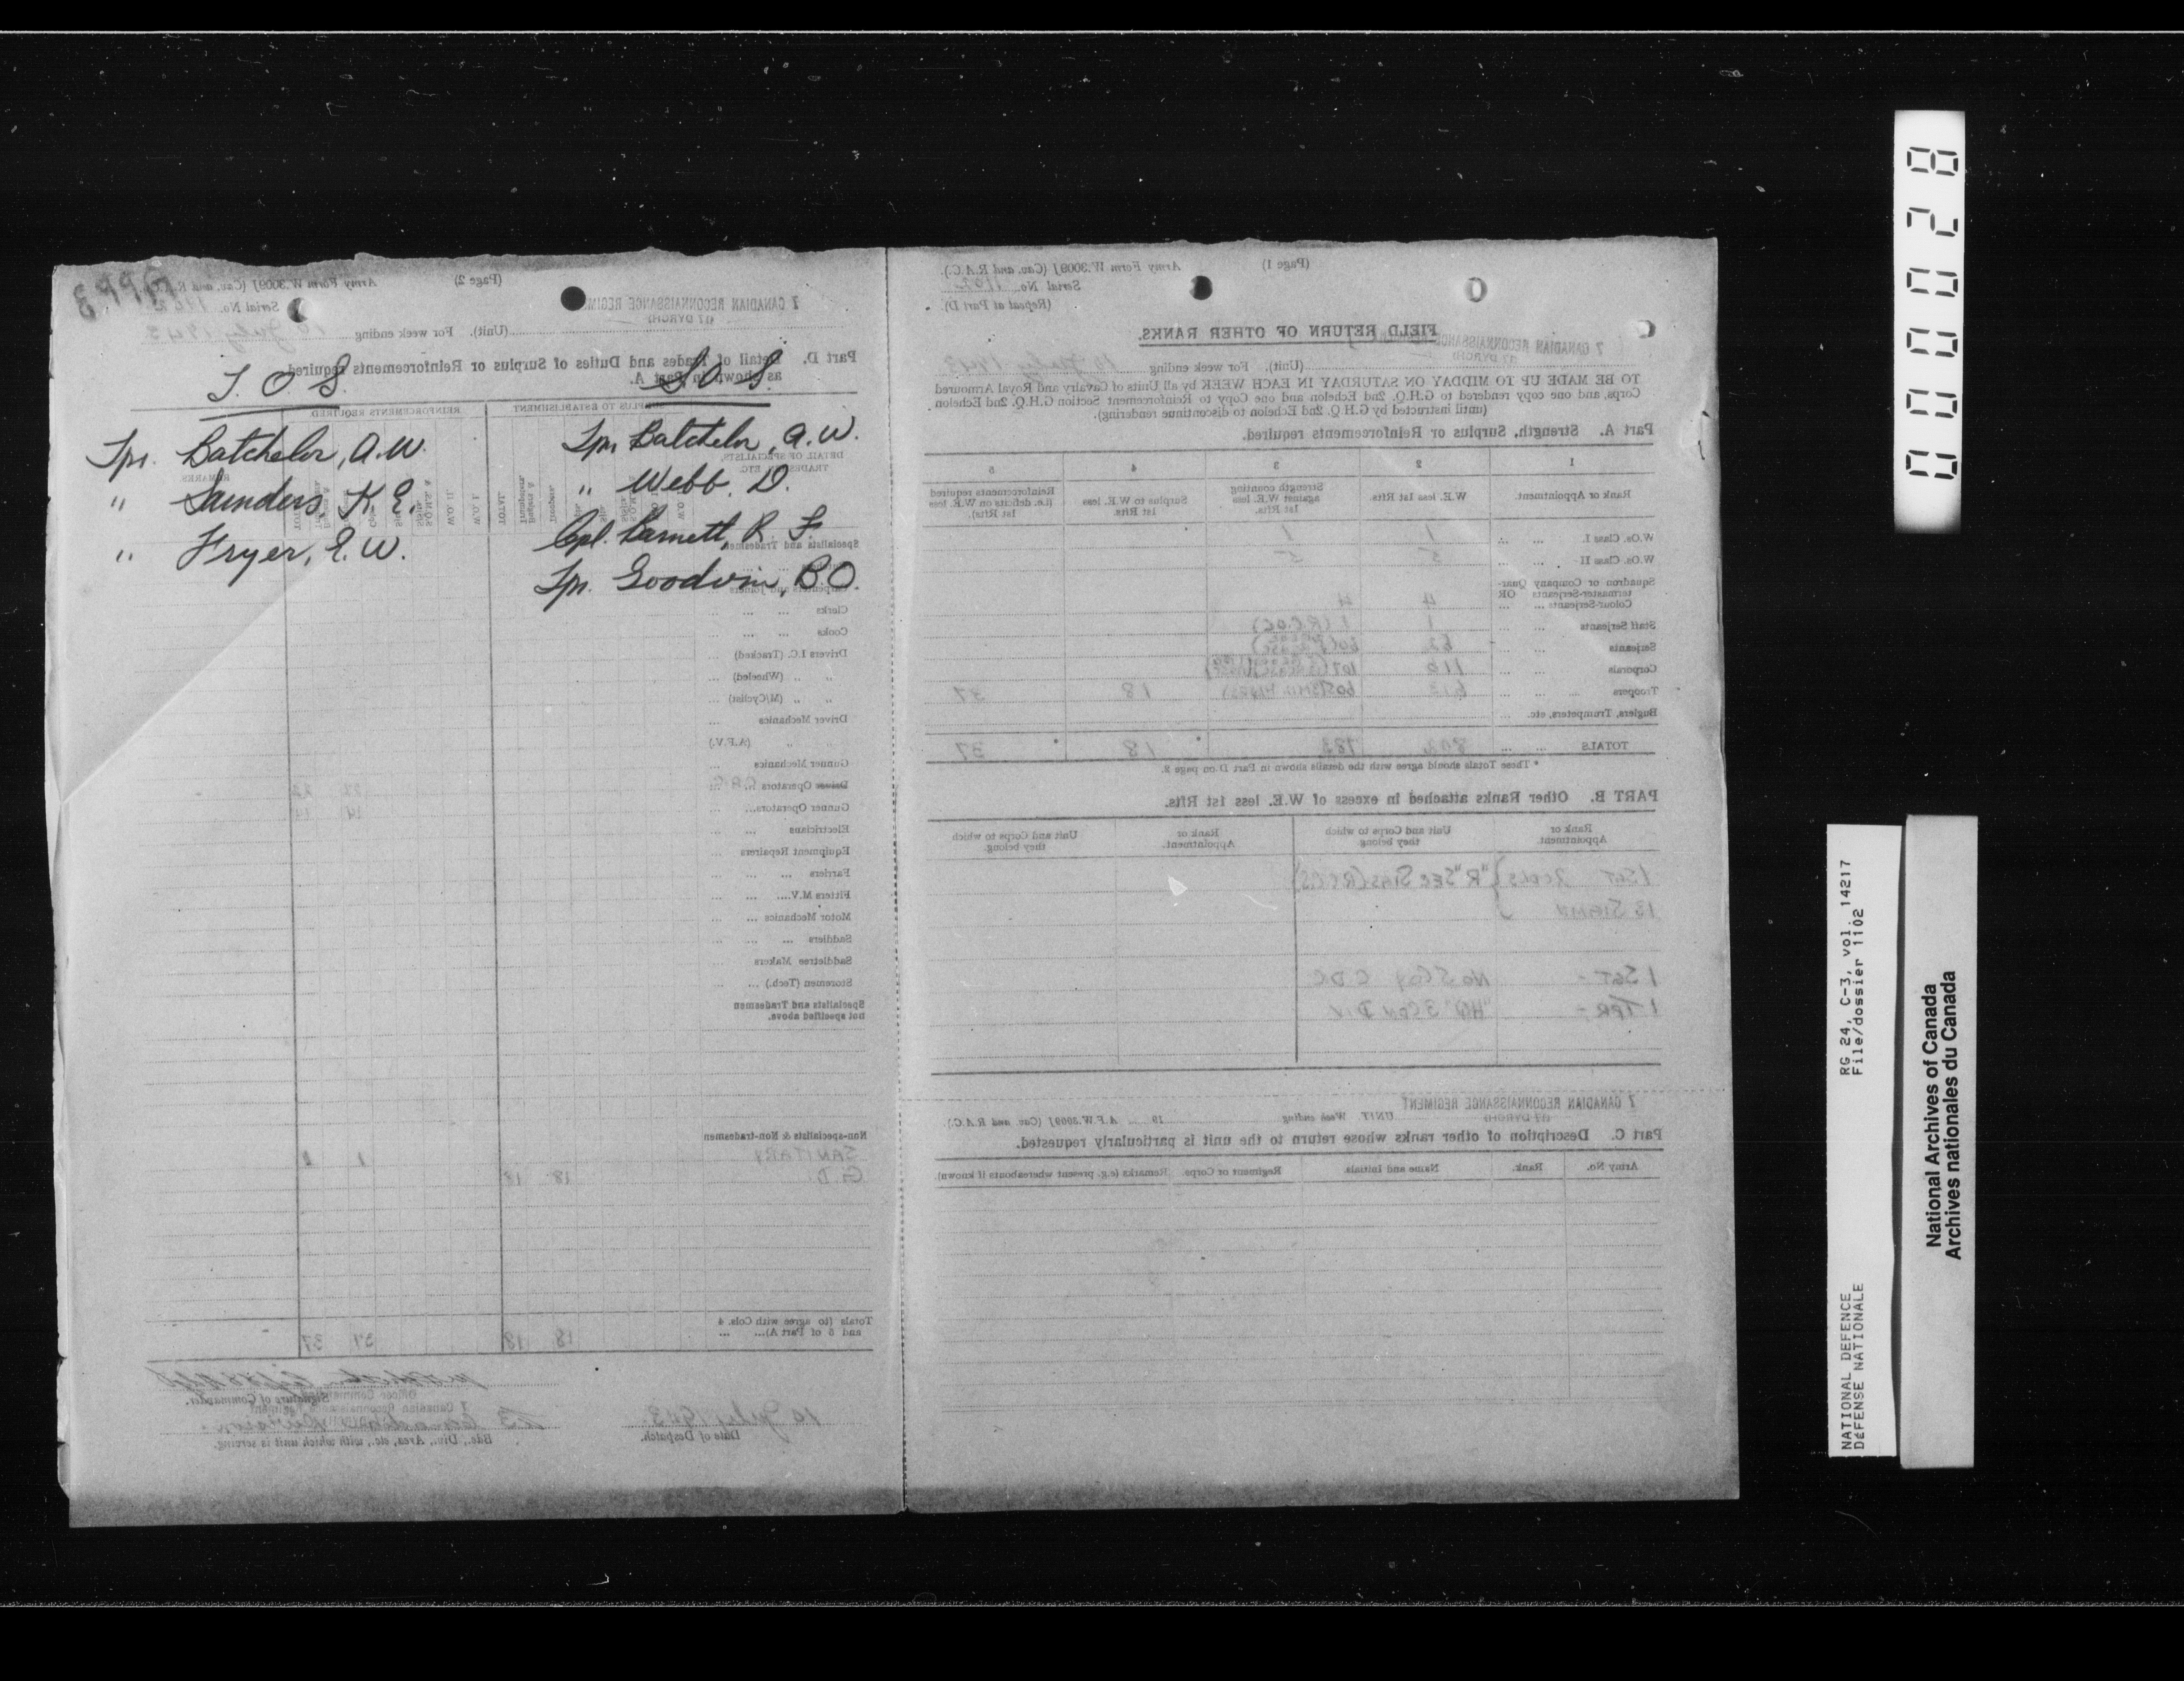 T. O. S.
Tpr. Batchelor, A. W.
" Saunders, K. E.
" Fryer, E. W.
S. O. S.
Tpr. Batchelor, A. W.
" Webb, D.
Cpl. Barnett, R. F.
Tpr. Goodwin, B. O.
(Page 2)
Army Form W.3009J (Cav. and R.A.C.).
Serial No.
7 CANADIAN RECONNAISSANCE REGIM
(17 DYRCH)
(Unit). For week ending 10 July 1943
Part D. Detail of Trades and Duties of Surplus or Reinforcements required
as shown in Part A.
SURPLUS TO ESTABLISHMENT
REINFORCEMENTS REQUIRED
DETAIL OF SPECIALISTS,
TRADES, ETC
REMARKS
TOTAL
W.O. I.
W.O. II.
Specialists and Tradesmen
Carpenters and Joiners
Clerks
Cooks
Drivers I.C. (Tracked)
" " (Wheeled)
" " (M/Cyclist)
Driver Mechanics
" " (A.F.V.)
Gunner Mechanics
Driver Operators
Gunner Operators
14 14
Electricians
Equipment Repairers
Farriers
Fitters M.V.
Motor Mechanics
Saddlers
Saddletree Makers
Storemen (Tech.)
Specialists and Tradesmen
not specified above.
Non-specialists & Non-tradesmen
SANITARY 1 1
G.D. 18 18
Totals (to agree with Cols. 4
and 5 of Part A) 18 18 37 37
Signature of Commander.
10 July 1943
Date of Despatch.
Bde., Div., Area, etc., with which unit is serving.
(Page 1)
Army Form W.3009J (Cav. and R.A.C.).
Serial No. 1102
(Repeat at Part D)
FIELD RETURN OF OTHER RANKS.
7 CANADIAN RECONNAISSANCE
(17 DYRCH)
(Unit). For week ending 10 July 1943
TO BE MADE UP TO MIDDAY ON SATURDAY IN EACH WEEK by all Units of Cavalry and Royal Armoured
Corps, and one copy rendered to G.H.Q. 2nd Echelon and one Copy to Reinforcement Section G.H.Q. 2nd Echelon
(until instructed by G.H.Q. 2nd Echelon to discontinue rendering).
Part A. Strength, Surplus or Reinforcements required.
1 2 3 4 5
Rank or Appointment. W.E. less 1st Rfts Strength counting against W.E. less 1st Rfts. Surplus to W.E. less 1st Rfts. Reinforcements required (i.e. deficits on W.E. less 1st Rfts).
W.Os. Class I. 1 1
W.Os. Class II 5 5
Squadron or Company Quar-
termaster-Serjeants OR
Colour-Serjeants 4 4
Staff Serjeants 1 1 (RCOC)
Serjeants
Corporals
Troopers 18 37
Buglers, Trumpeters, etc.
TOTALS 802 783 18 37
* These Totals should agree with the details shown in Part D on page 2.
PART B. Other Ranks attached in excess of W.E. less 1st Rfts.
Rank or Appointment. Unit and Corps to which they belong Rank or Appointment. Unit and Corps to which they belong.
1 SGT "R" SEC SIGS (RCCS)
13 SIGMN
1 SGT - No 5 Coy CDC
1 TPR - "HQ" 3 CDN DIV
7 CANADIAN RECONNAISSANCE REGIMENT
(17 DYRCH)
UNIT Week ending 19 A.F.W.3009J (Cav. and R.A.C.).
Part C. Description of other ranks whose return to the unit is particularly requested.
Army No. Rank. Name and Initials. Regiment or Corps. Remarks (e.g. present whereabouts if known).
000028
RG 24, C-3, vol. 14217
File/dossier 1102
NATIONAL DEFENCE
DéFENSE NATIONALE
National Archives of Canada
Archives nationales du Canada